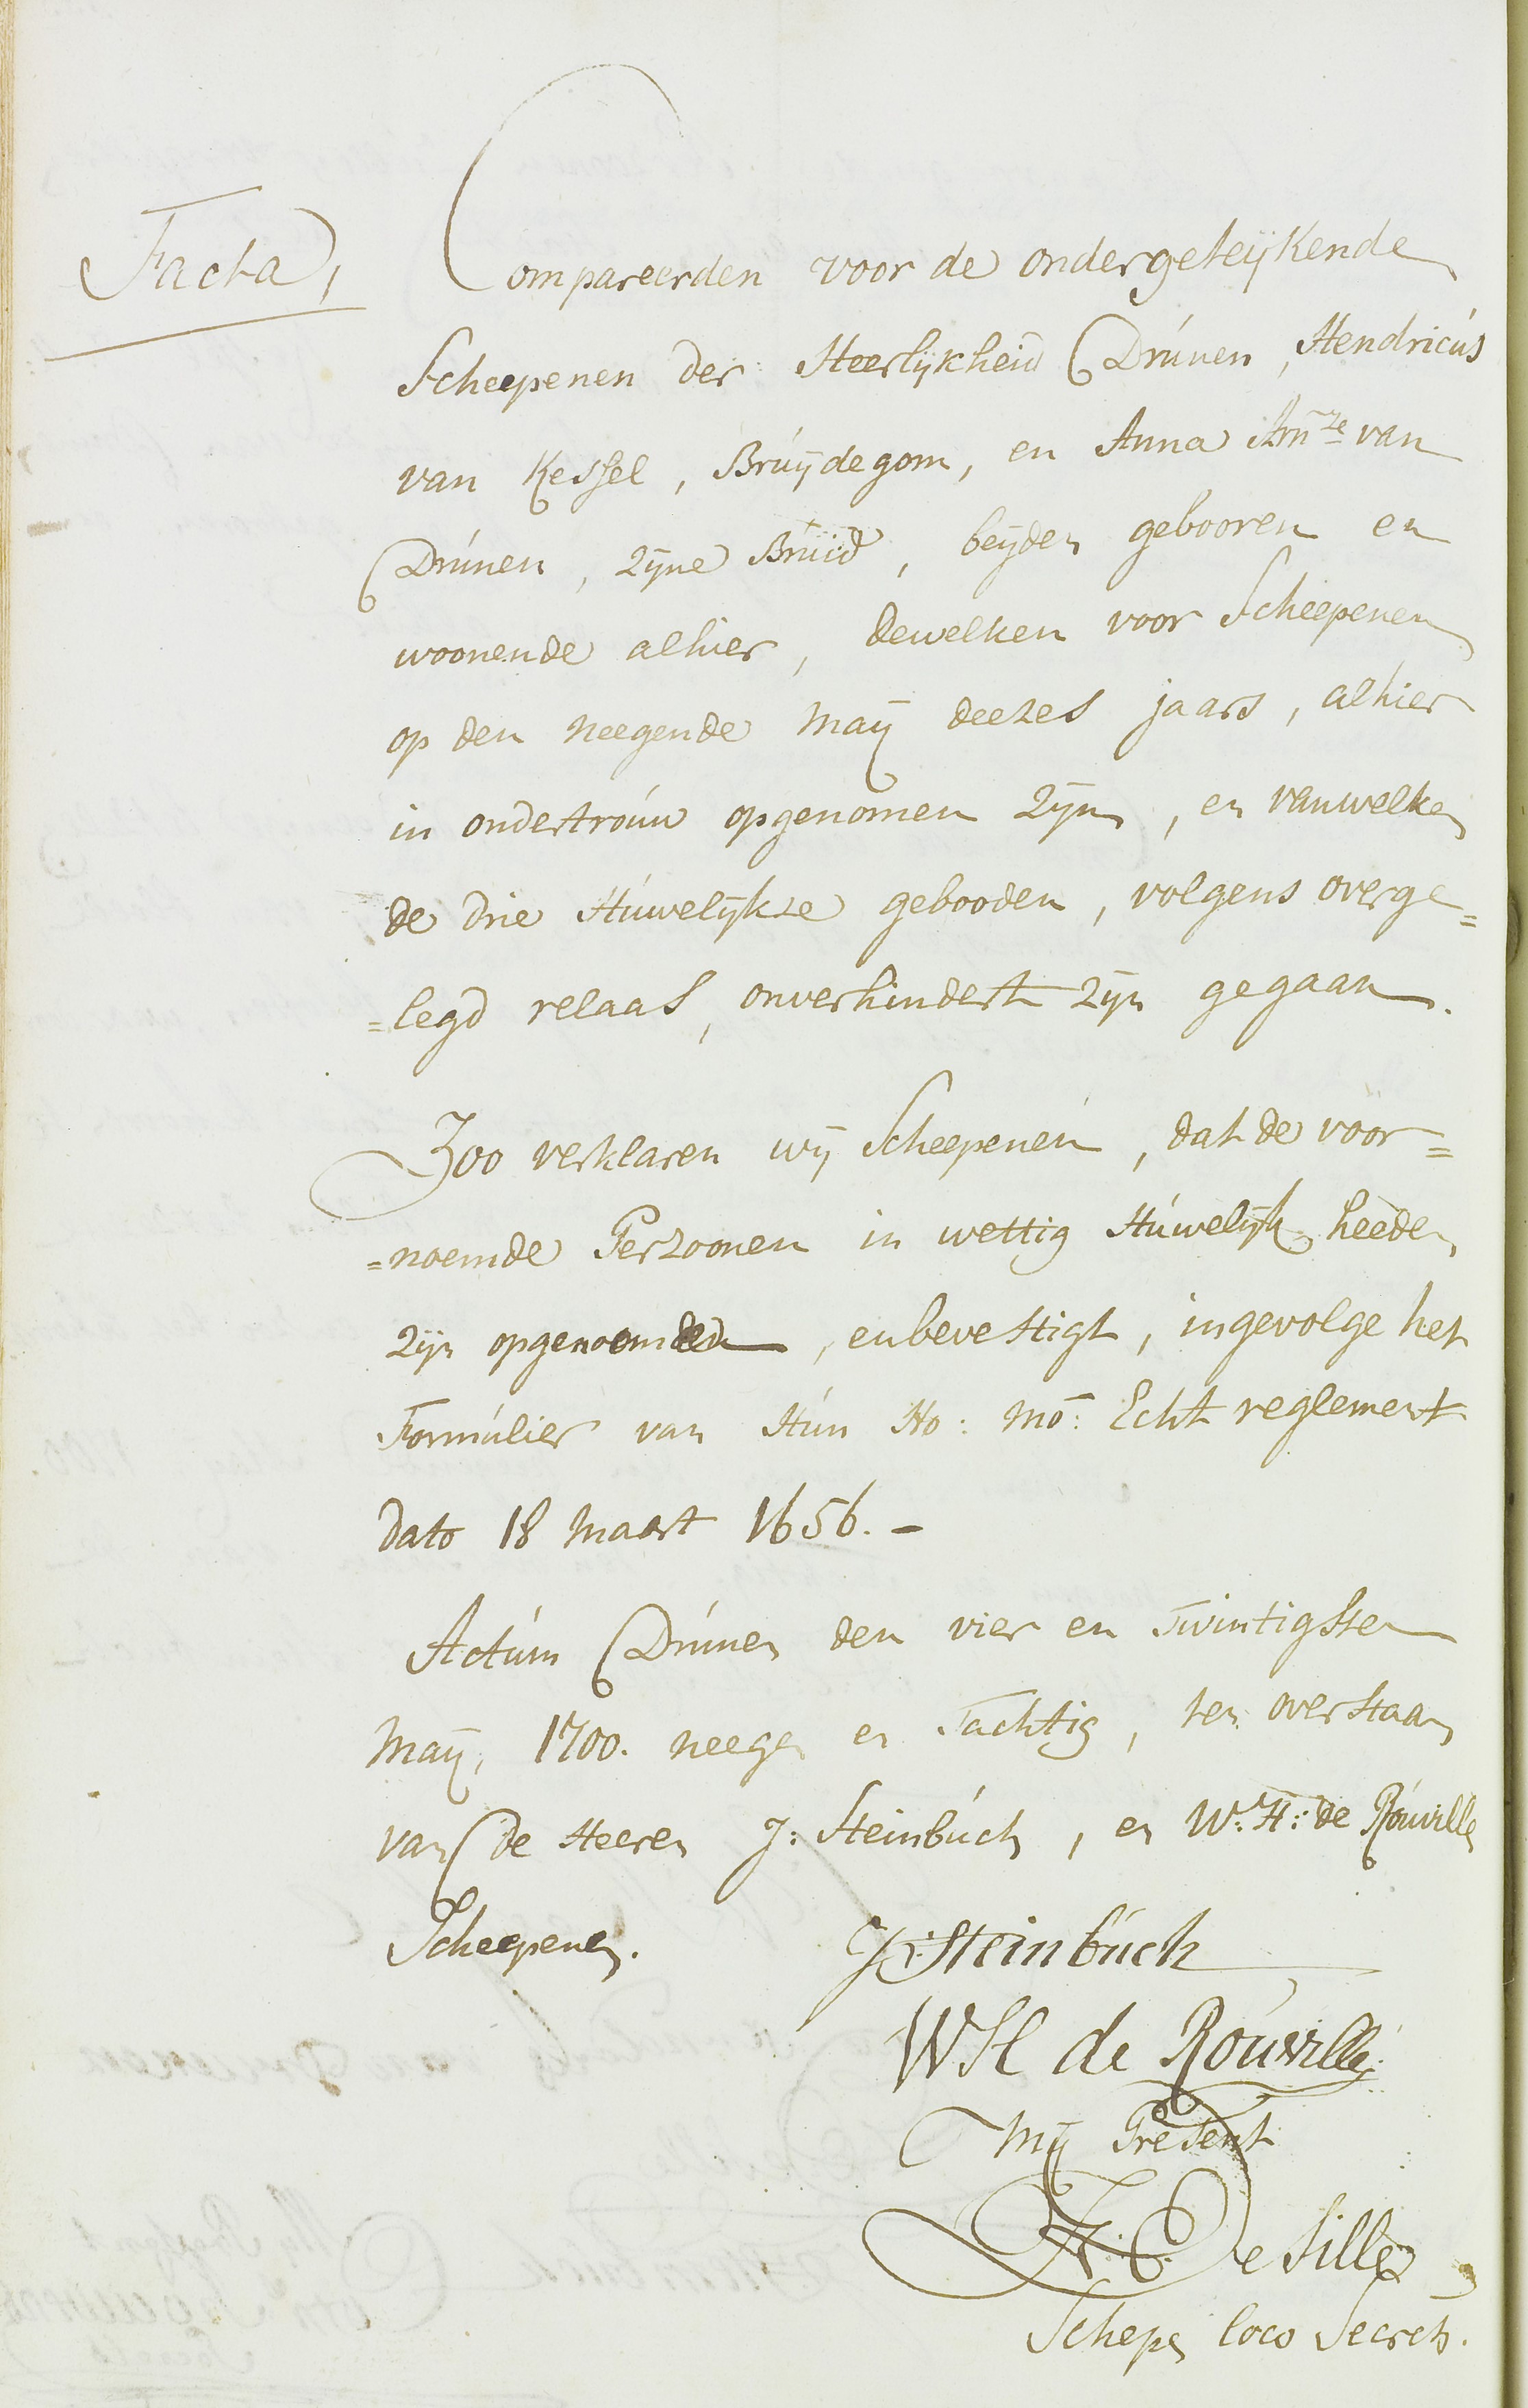 Facta,
Compareerden voor de ondergeteijkende
Scheepenen der Heerlijkheid Drúnen, Hendricús
van Kessel, Brúijdegom, en Anna Arn.ze van
Drúnen, zijne Brúid, beijden gebooren en
woonende alhier, dewelken voor Scheepenen
op den neegende Maij deezes jaars, alhier
in ondertroúw opgenomen zijn, en vanwelken
de drie Húwelijkse gebooden, volgens overge=
=legd relaas, onverhindert zijn gegaan.
Zoo verklaren wij Scheepenen, dat de voor=
=noemde Perzoonen in wettig Húwelijk heeden
zijn opgenoomen, en bevestigt, ingevolge het
Formúlier van Hún Ho: Mo: Echt reglement
dato 18 Maart 1656. -
Actúm Drúnen den vier en Twintigsten
Maij, 1700. neegen en Tachtig, ten overstaan
van de Heeren J: Steinbúch, en W: H: de Roúville
Scheepenen.
J: Steinbúch
WH de Roúville
Mij Present
De Sille
Schepe loco Secrets.